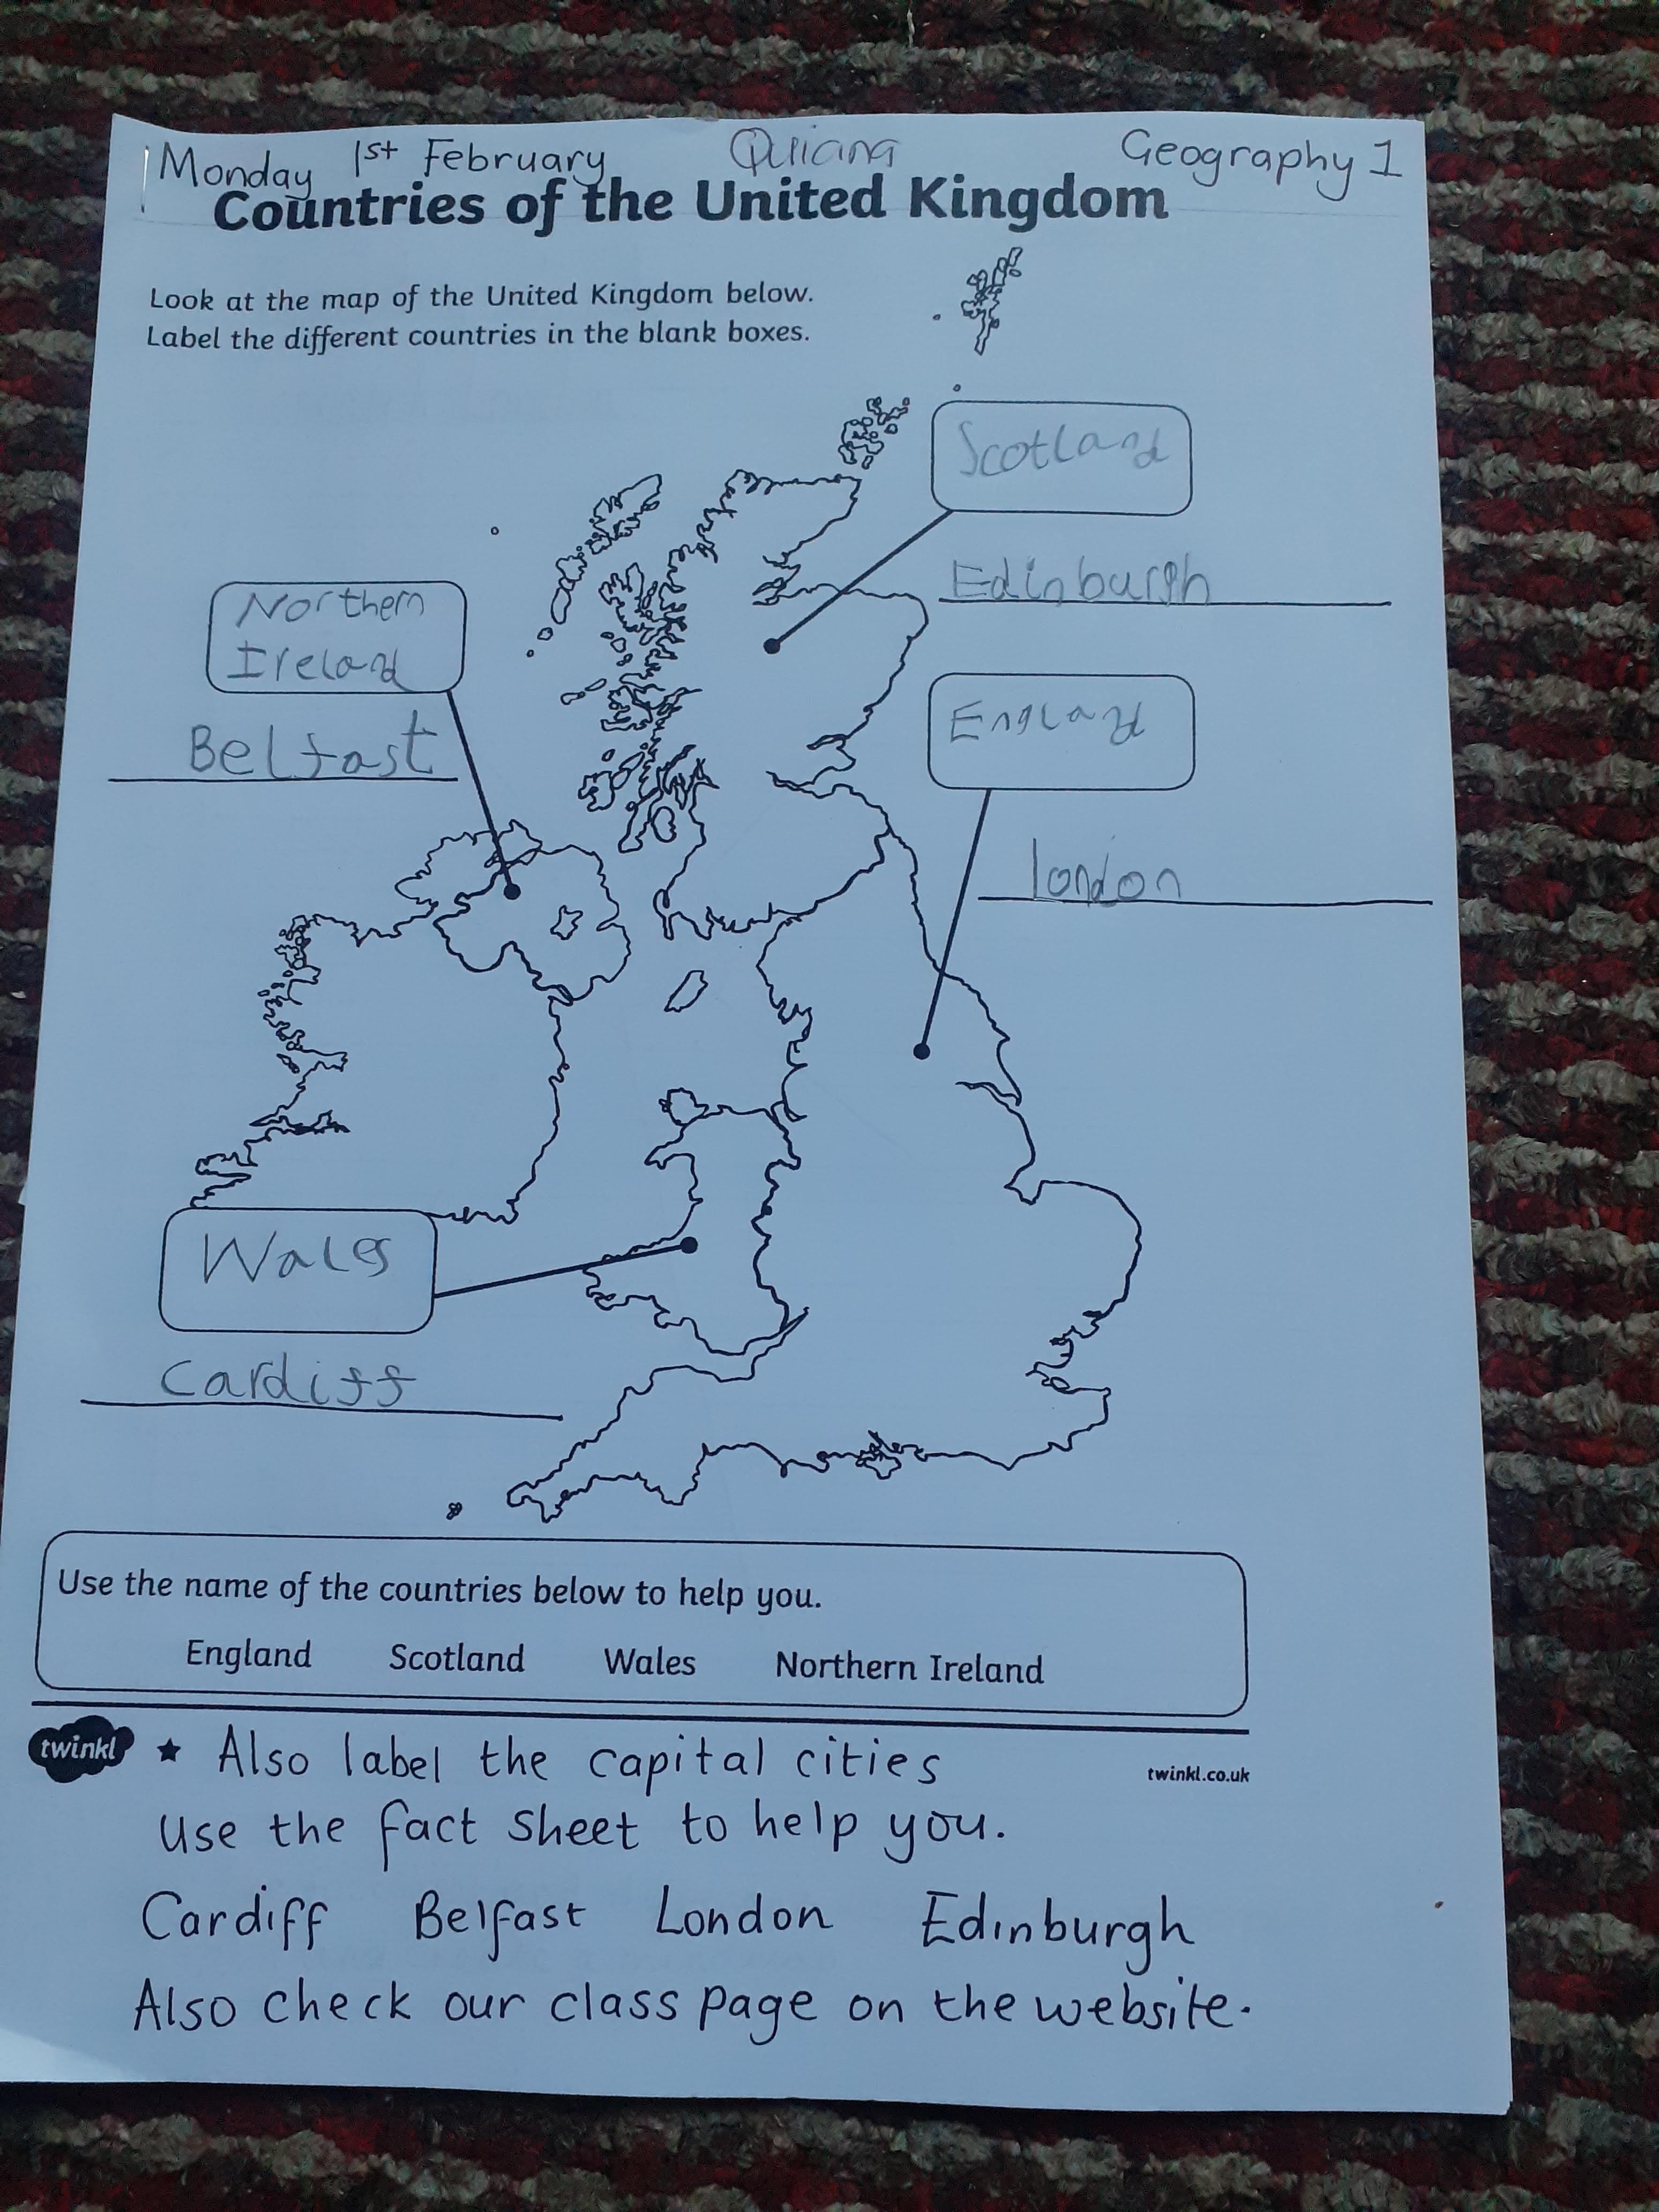 Monday 1st February Quiana Geography 1
Countries of the United Kingdom
Look at the map of the United Kingdom below.
Label the different countries in the blank boxes.
Scotland
Edinburgh
Northern
Ireland
Belfast
England
london
Wales
Cardiff
Use the name of the countries below to help you.
England Scotland Wales Northern Ireland
twinkl ★ Also label the capital cities
twinkl.co.uk
Use the fact sheet to help you.
Cardiff Belfast London Edinburgh
Also check our class page on the website.